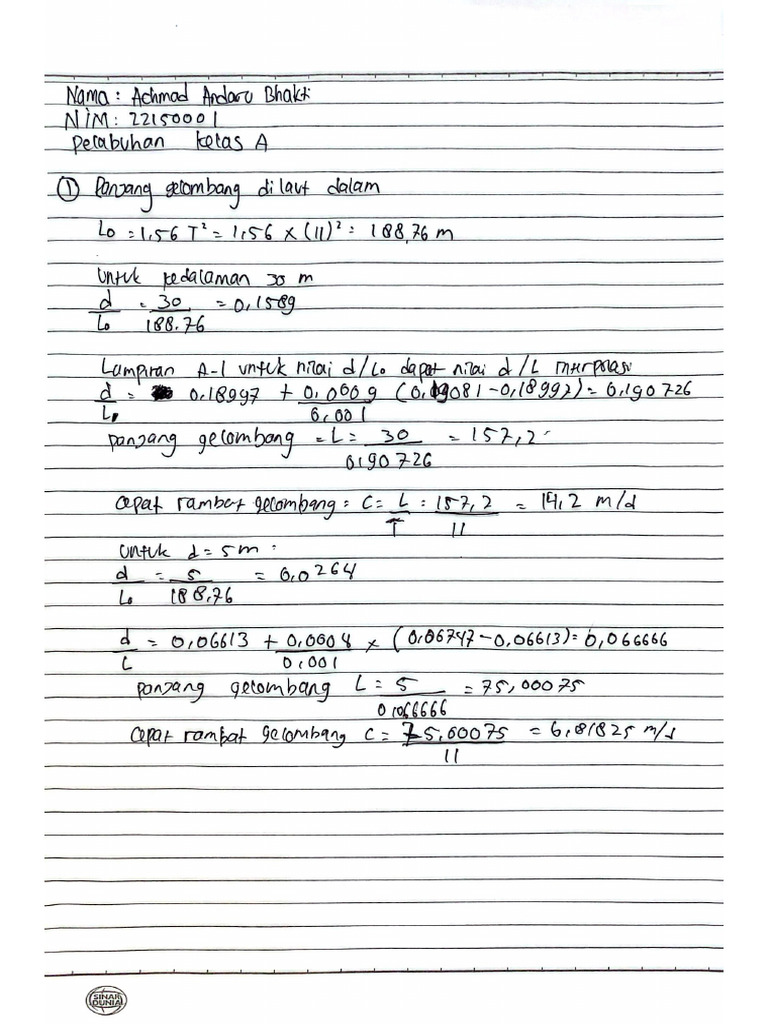 Nama: Achmad Andaru Bhakti
NIM: 22150001
pelabuhan kelas A
① Panjang gelombang di laut dalam
Lo = 1,56 T² = 1,56 x (11)² = 188,76 m
Untuk kedalaman 30 m
d/Lo = 30/188.76 = 0,1589
Lampiran A-1 untuk nilai d/Lo dapat nilai d/L interpolasi
d/L = 0,18997 + 0,0009/0,001 (0,19081 - 0,18997) = 0,190726
panjang gelombang = L = 30/0,190726 = 157,2
Cepat rambat gelombang = C = L/T = 157,2/11 = 14,2 m/d
Untuk d = 5 m :
d/Lo = 5/188,76 = 0,0264
d/L = 0,06613 + 0,0004/0,001 x (0,06747 - 0,06613) = 0,066666
panjang gelombang L = 5/0,066666 = 75,00075
Cepat rambat gelombang C = 75,00075/11 = 6,81825 m/d
SINAR DUNIA